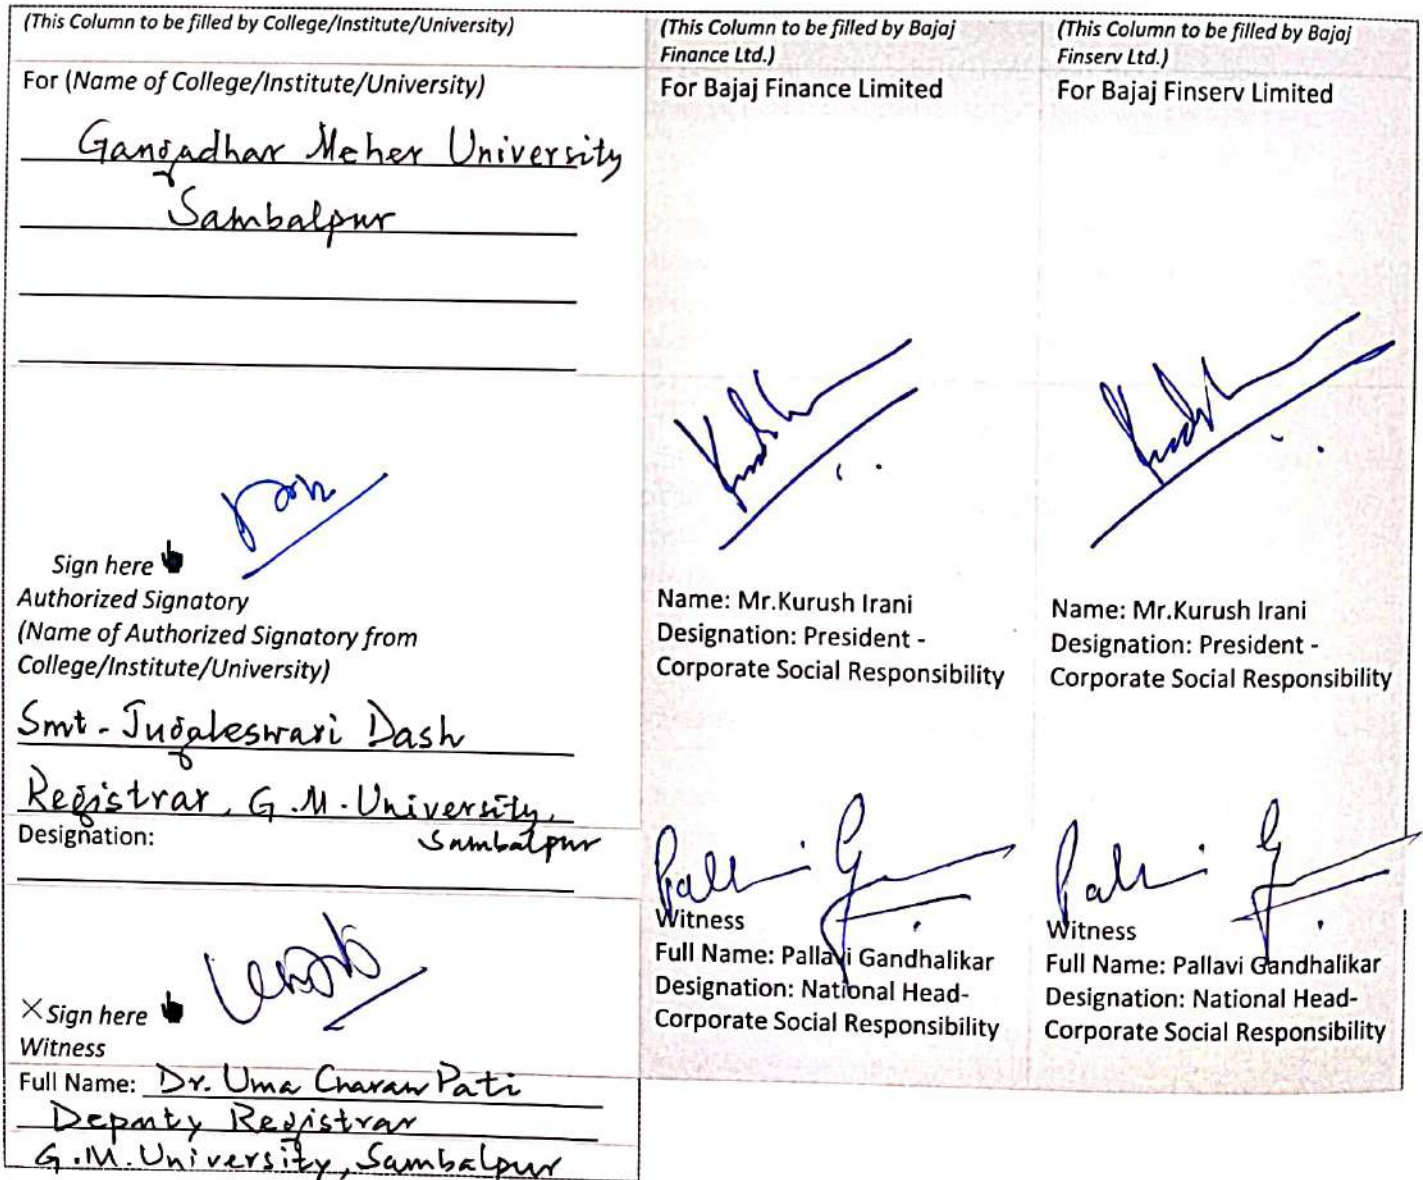 (This Column to be filled by College/Institute/University)
For (Name of College/Institute/University)
Gangadhar Meher University
Sambalpur
Sign here
Authorized Signatory
(Name of Authorized Signatory from
College/Institute/University)
Smt - Jugaleswari Dash
Registrar, G.M. University,
Sambalpur
Designation:
×Sign here
Witness
Full Name: Dr. Uma Charan Pati
Deputy Registrar
G.M. University, Sambalpur
(This Column to be filled by Bajaj
Finance Ltd.)
For Bajaj Finance Limited
Name: Mr.Kurush Irani
Designation: President -
Corporate Social Responsibility
Witness
Full Name: Pallavi Gandhalikar
Designation: National Head-
Corporate Social Responsibility
(This Column to be filled by Bajaj
Finserv Ltd.)
For Bajaj Finserv Limited
Name: Mr.Kurush Irani
Designation: President -
Corporate Social Responsibility
Witness
Full Name: Pallavi Gandhalikar
Designation: National Head-
Corporate Social Responsibility